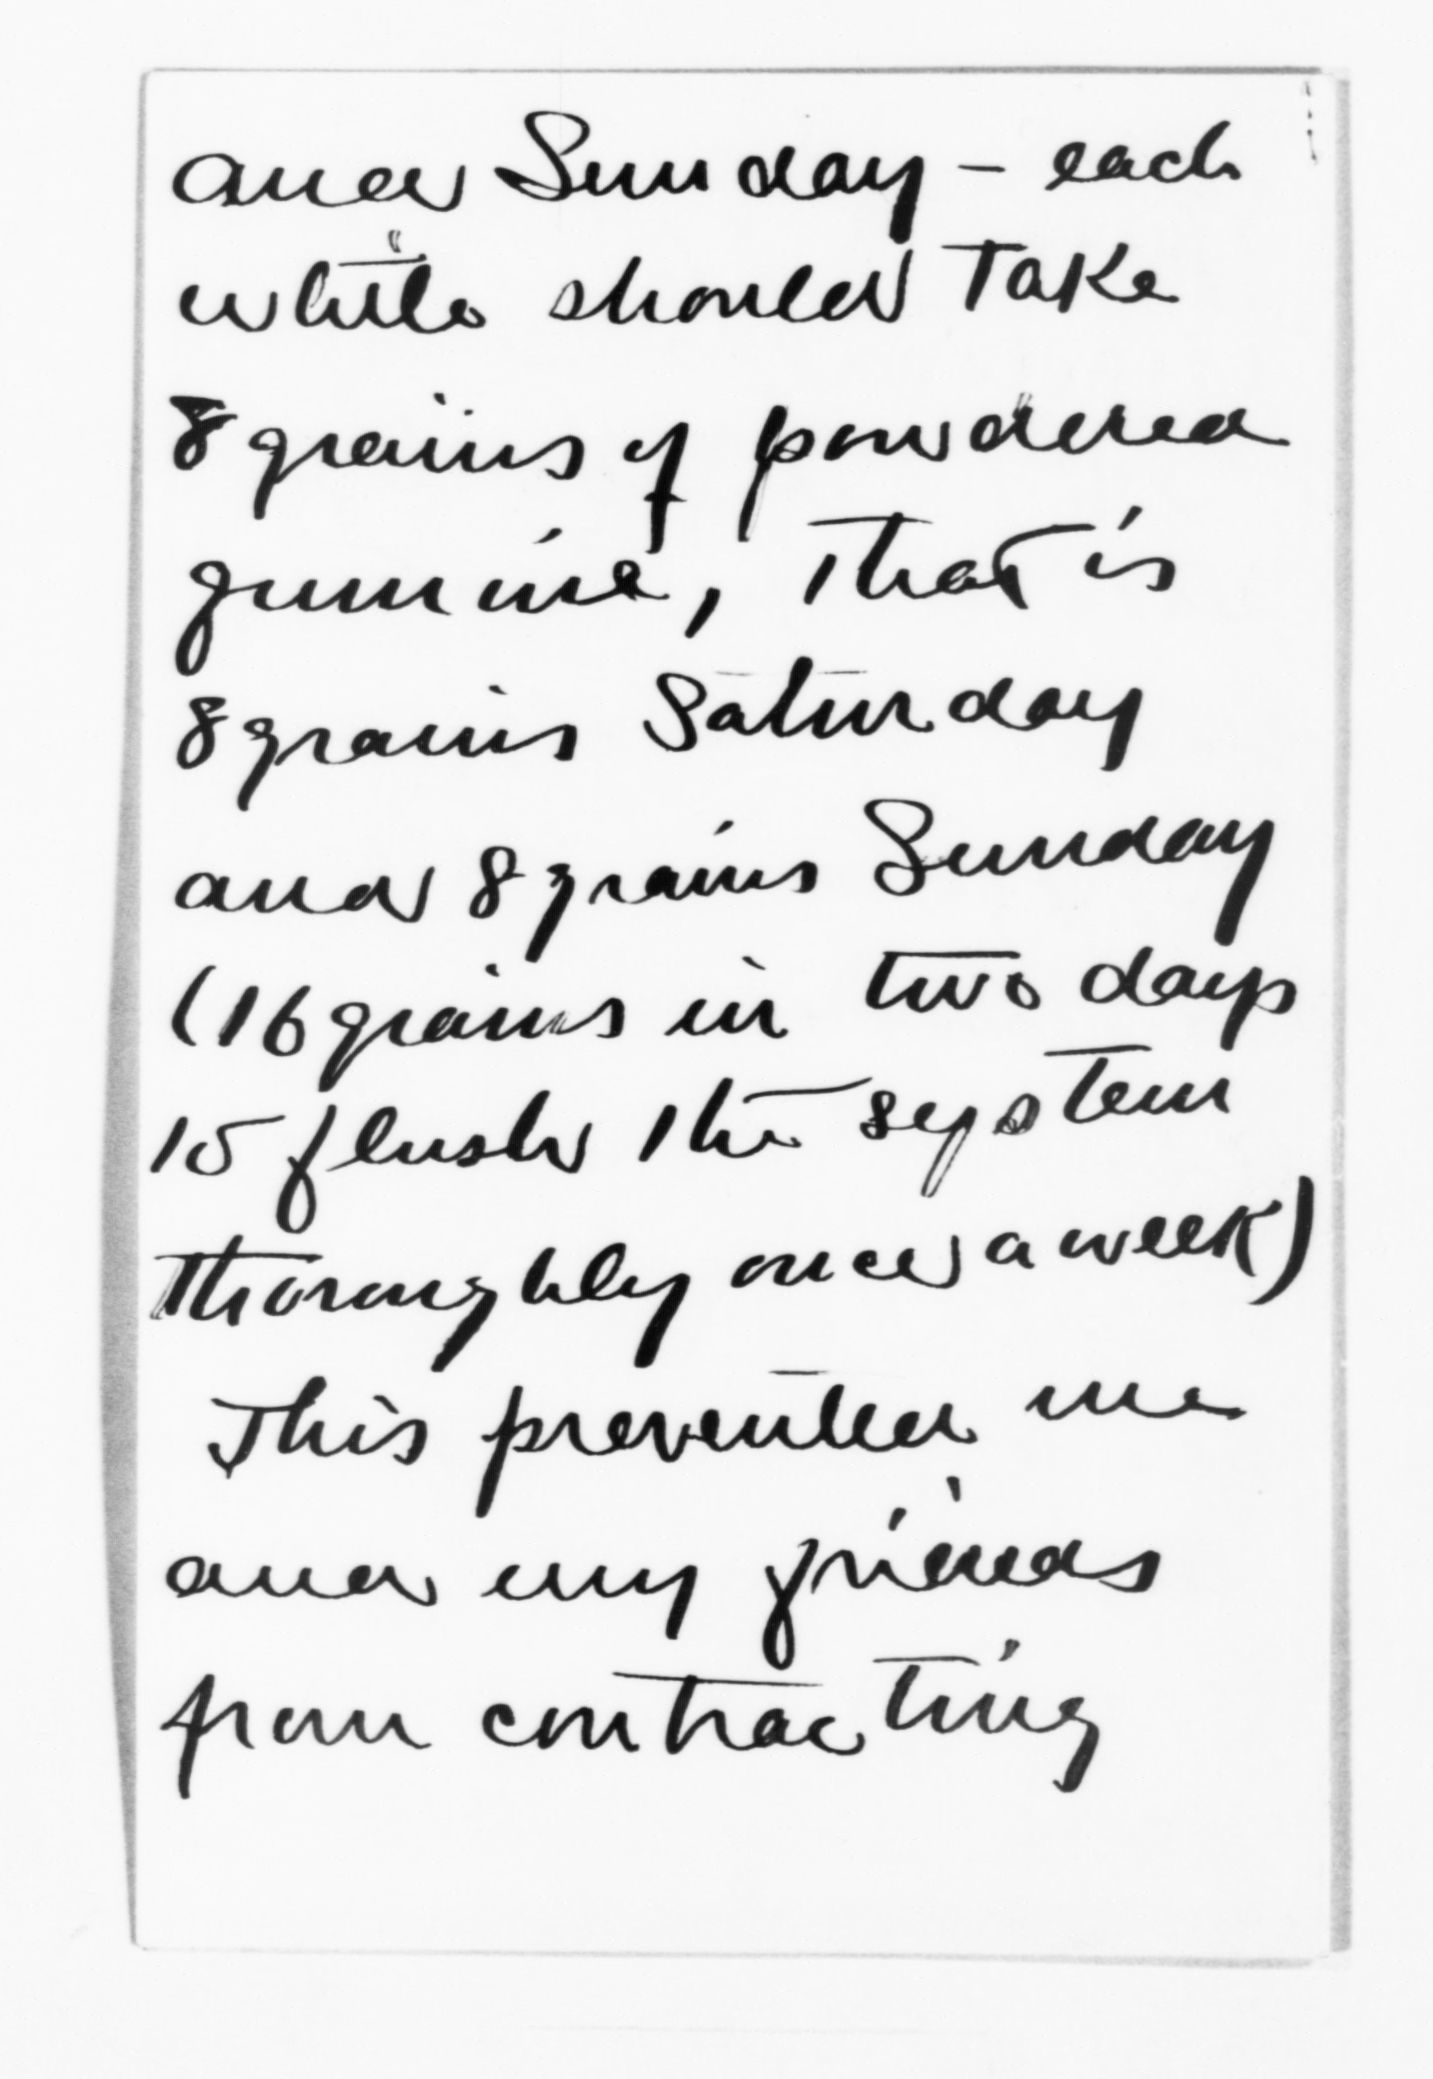 and Sunday - each
white should take
8 grains of powdered
quinine, that is
8 grains Saturday
and 8 grains Sunday
(16 grains in two days
to flush the system
thoroughly once a week)
This prevented me
and my friends
from contracting